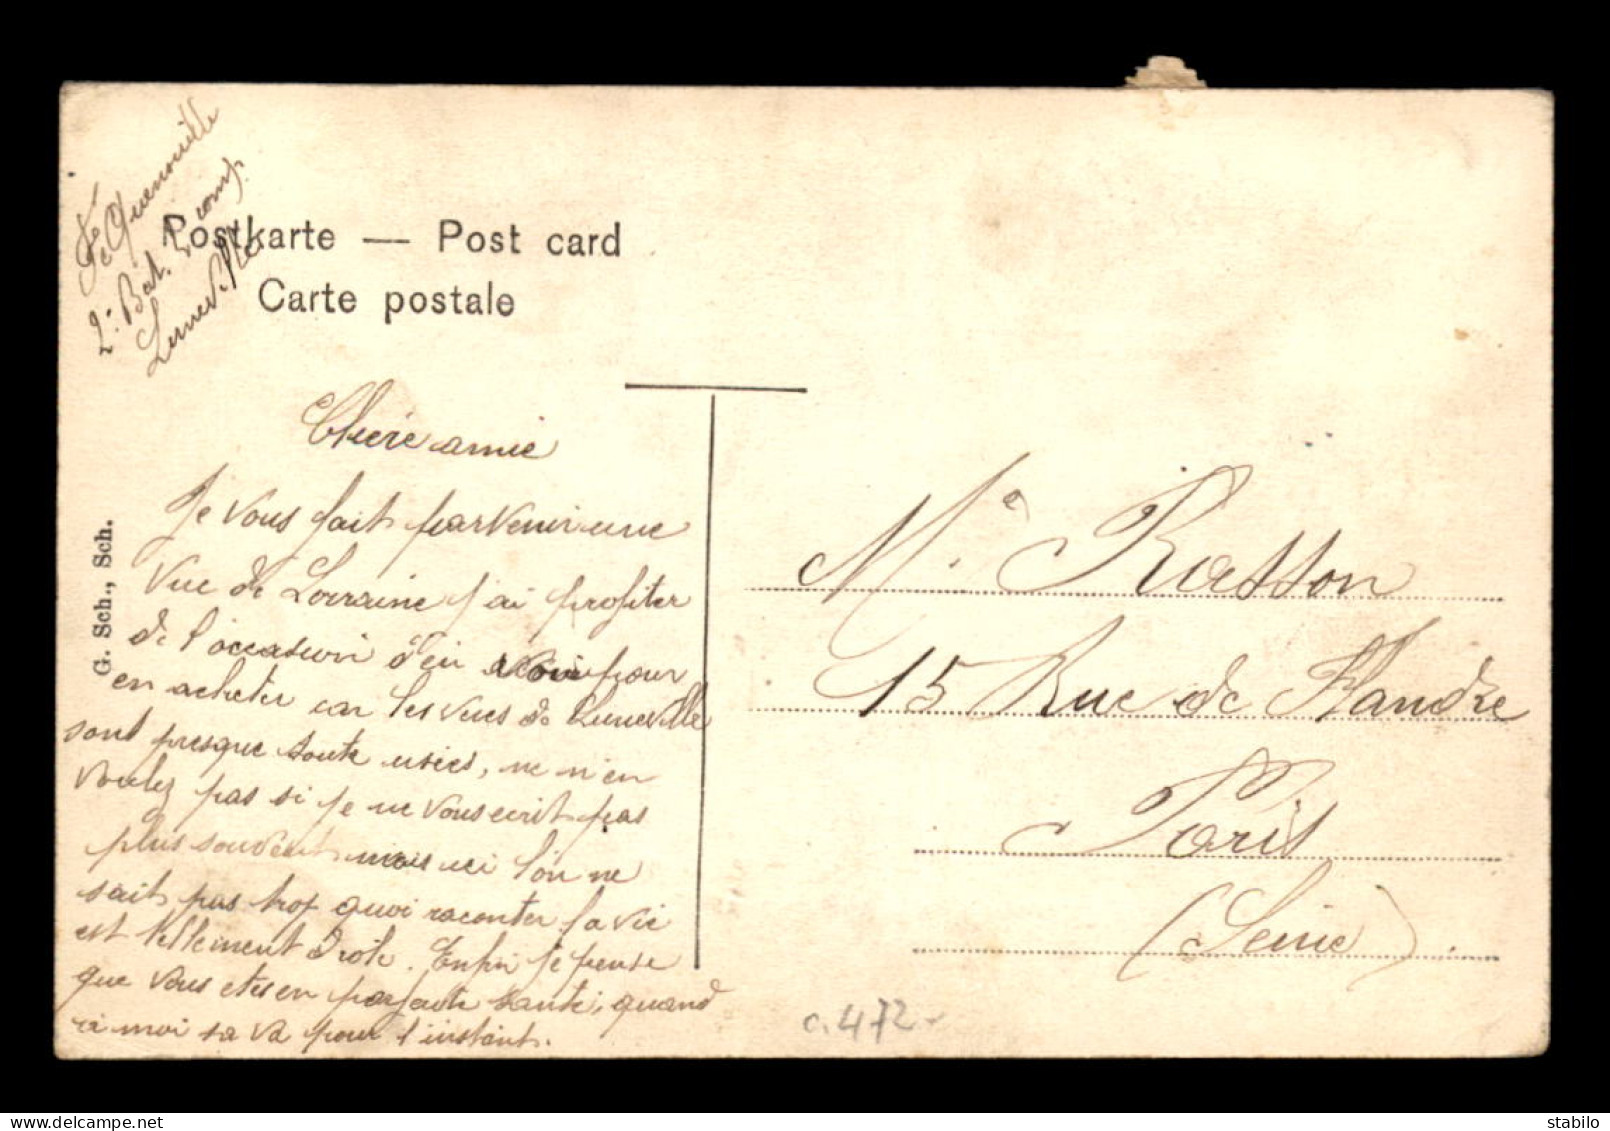 Quenouille
2e Bat. 2 comp.
Luneville
Postkarte — Post card
Carte postale
G. Sch., Sch.
Chère amie
Je vous fait parvenir une
vue de Lorraine j'ai profiter
de l'occasion d'en avoir pour
en acheter car les vues de Luneville
sont presque toute usées, ne n'en
voulez pas si je ne vous ecrit pas
plus souvent mais ici l'on ne
sait pas trop quoi raconter la vie
est tellement drole. Enfin je pense
que vous etes en parfaite santé, quand
à moi sa va pour l'instant.
Me Rasson
15 Rue de Flandre
Paris
(Seine).
c. 472-
stabilo
www.delcampe.net